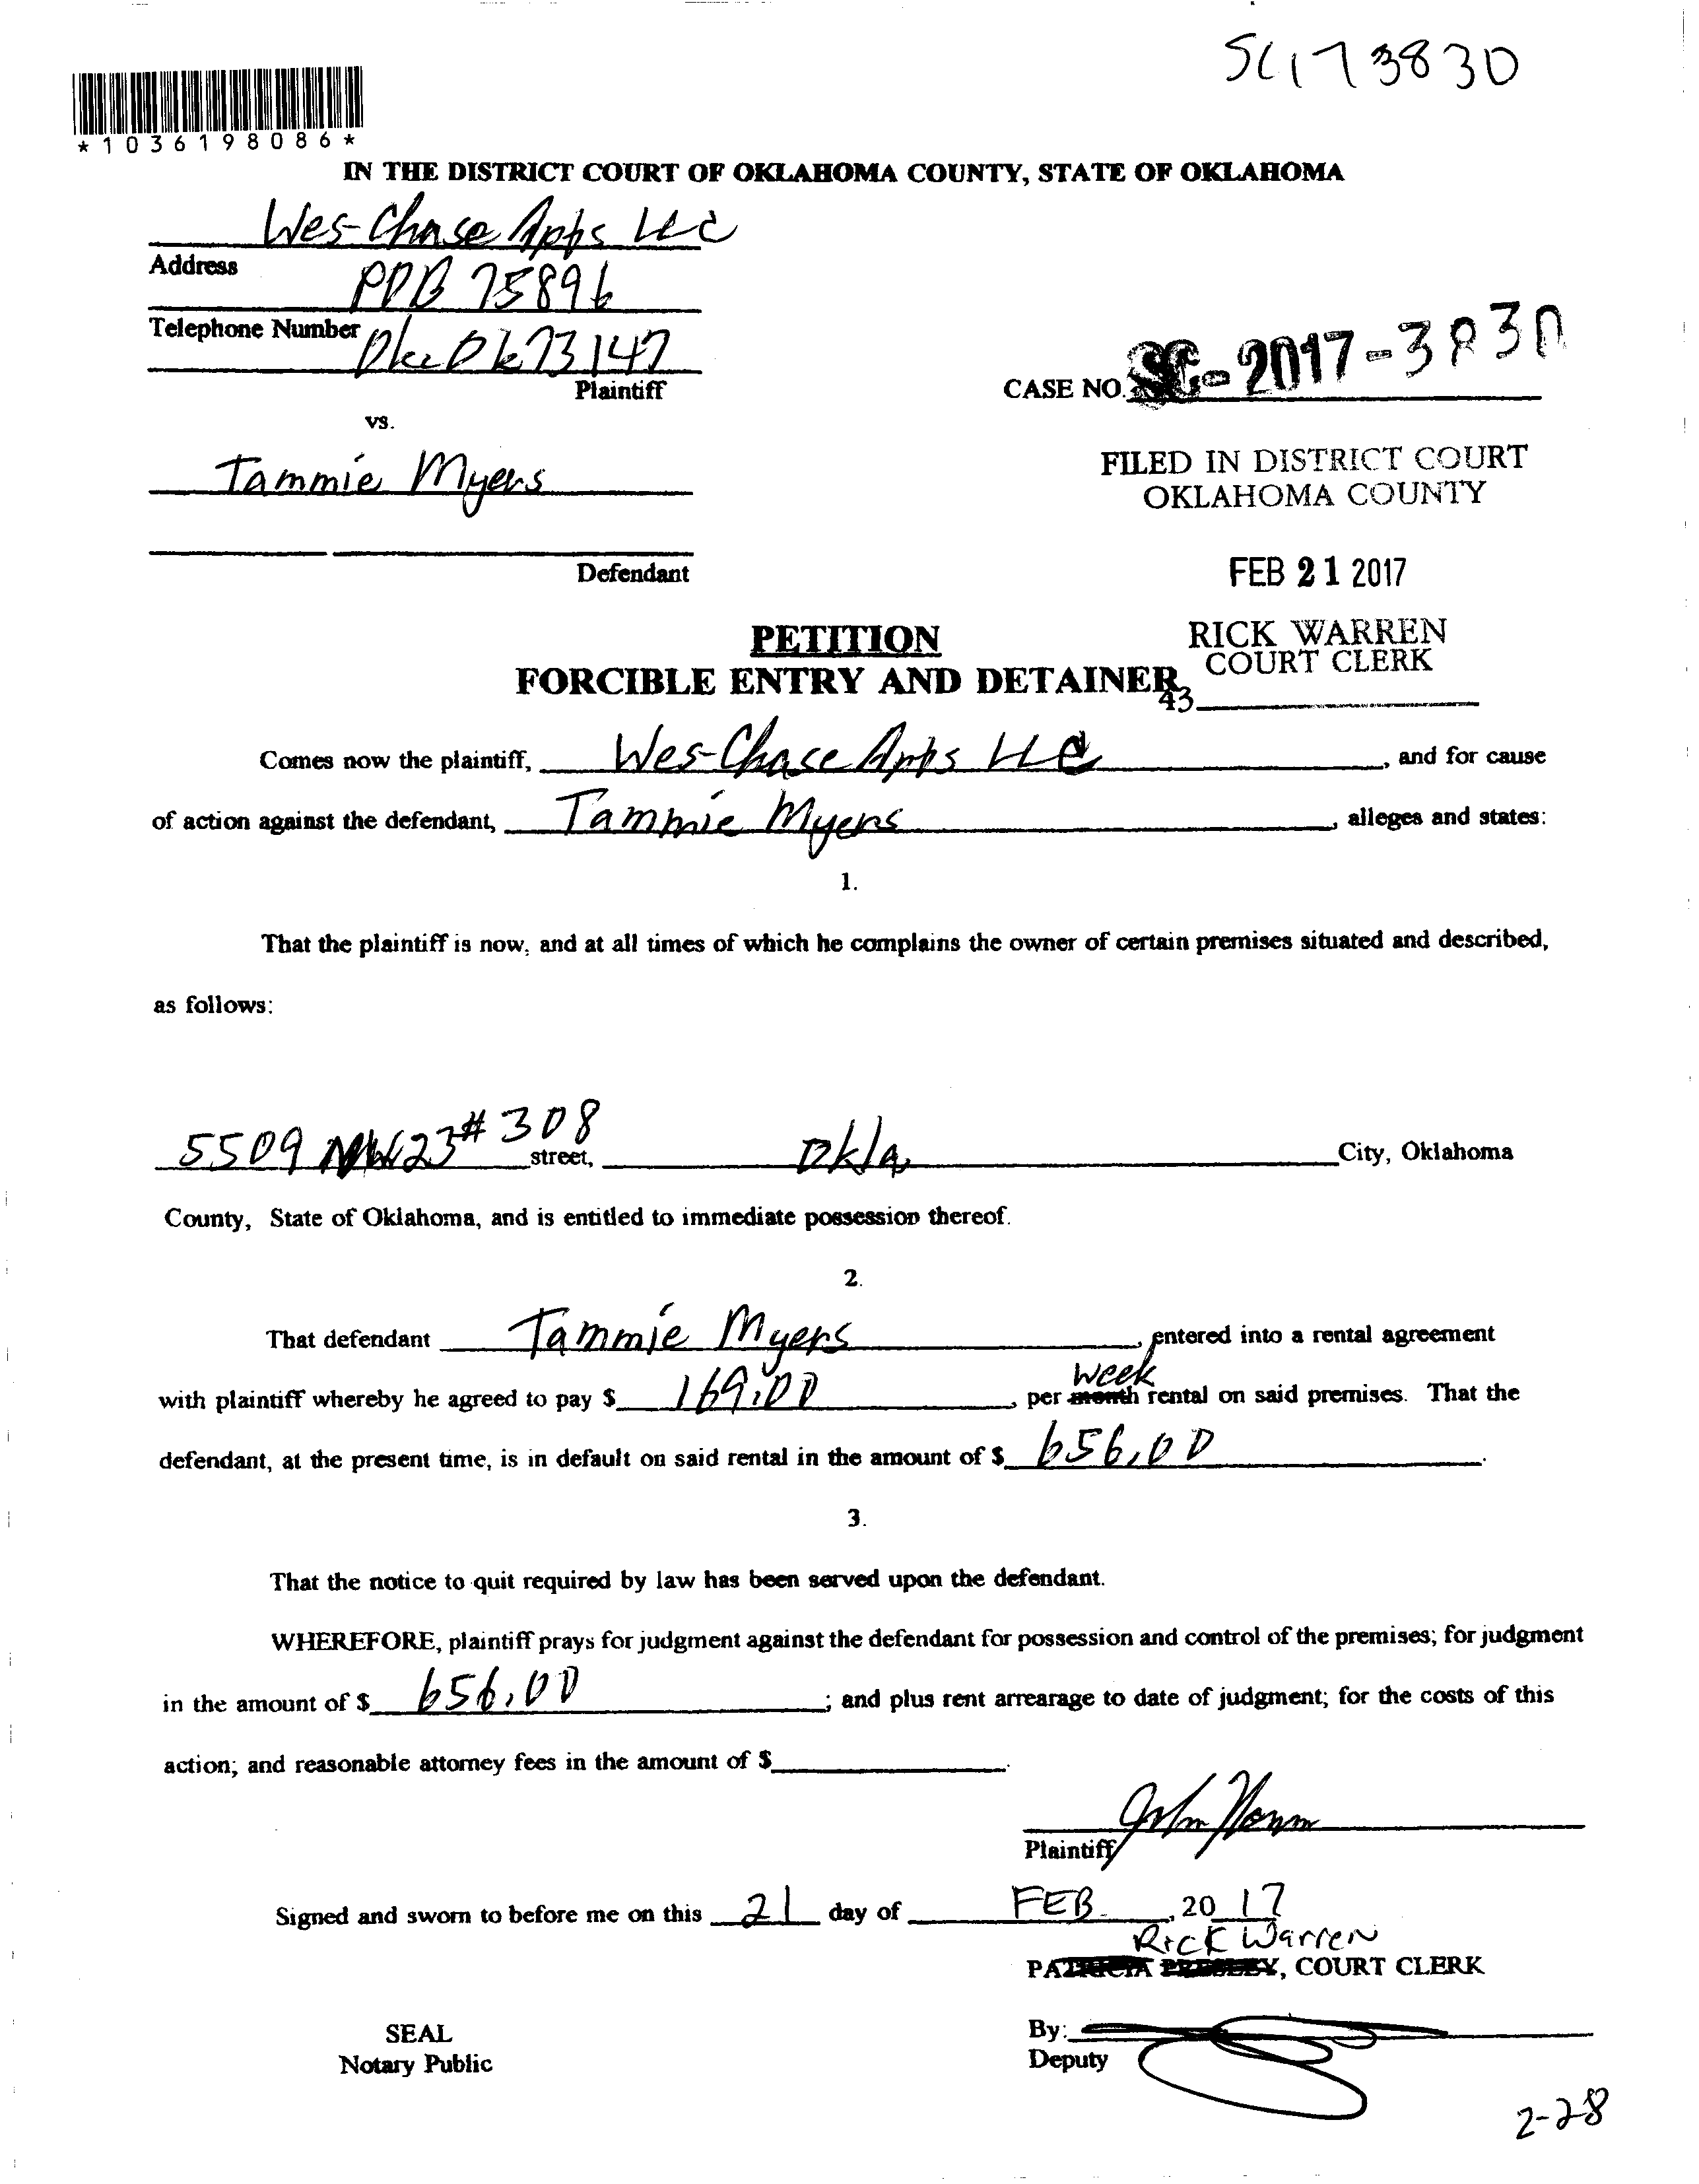 SC173830
*1036198086*
IN THE DISTRICT COURT OF OKLAHOMA COUNTY, STATE OF OKLAHOMA
Wes-Chase Apts LLC
Address
POB 75896
Telephone Number
Okc Ok 73147
Plaintiff
CASE NO. SC-2017-3830
vs.
Tammie Myers
FILED IN DISTRICT COURT
OKLAHOMA COUNTY
Defendant
FEB 21 2017
PETITION
RICK WARREN
COURT CLERK
FORCIBLE ENTRY AND DETAINER
43
Comes now the plaintiff, Wes-Chase Apts LLC, and for cause
of action against the defendant, Tammie Myers, alleges and states:
1.
That the plaintiff is now, and at all times of which he complains the owner of certain premises situated and described,
as follows:
5509 NW 23 # 308 street, Okla City, Oklahoma
County, State of Oklahoma, and is entitled to immediate possession thereof.
2.
That defendant Tammie Myers, entered into a rental agreement
week
with plaintiff whereby he agreed to pay $ 169.00, per month rental on said premises. That the
defendant, at the present time, is in default on said rental in the amount of $ 656.00.
3.
That the notice to quit required by law has been served upon the defendant.
WHEREFORE, plaintiff prays for judgment against the defendant for possession and control of the premises; for judgment
in the amount of $ 656.00; and plus rent arrearage to date of judgment; for the costs of this
action; and reasonable attorney fees in the amount of $.
Plaintiff
Signed and sworn to before me on this 21 day of FEB, 20 17
Rick Warren
PATRICIA PRESLEY, COURT CLERK
SEAL
Notary Public
By:
Deputy
2-28